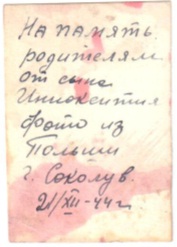 На память
родителям
от сына
Иннокентия
фото из
Польши
г. Соколув.
21/XII-44 г.